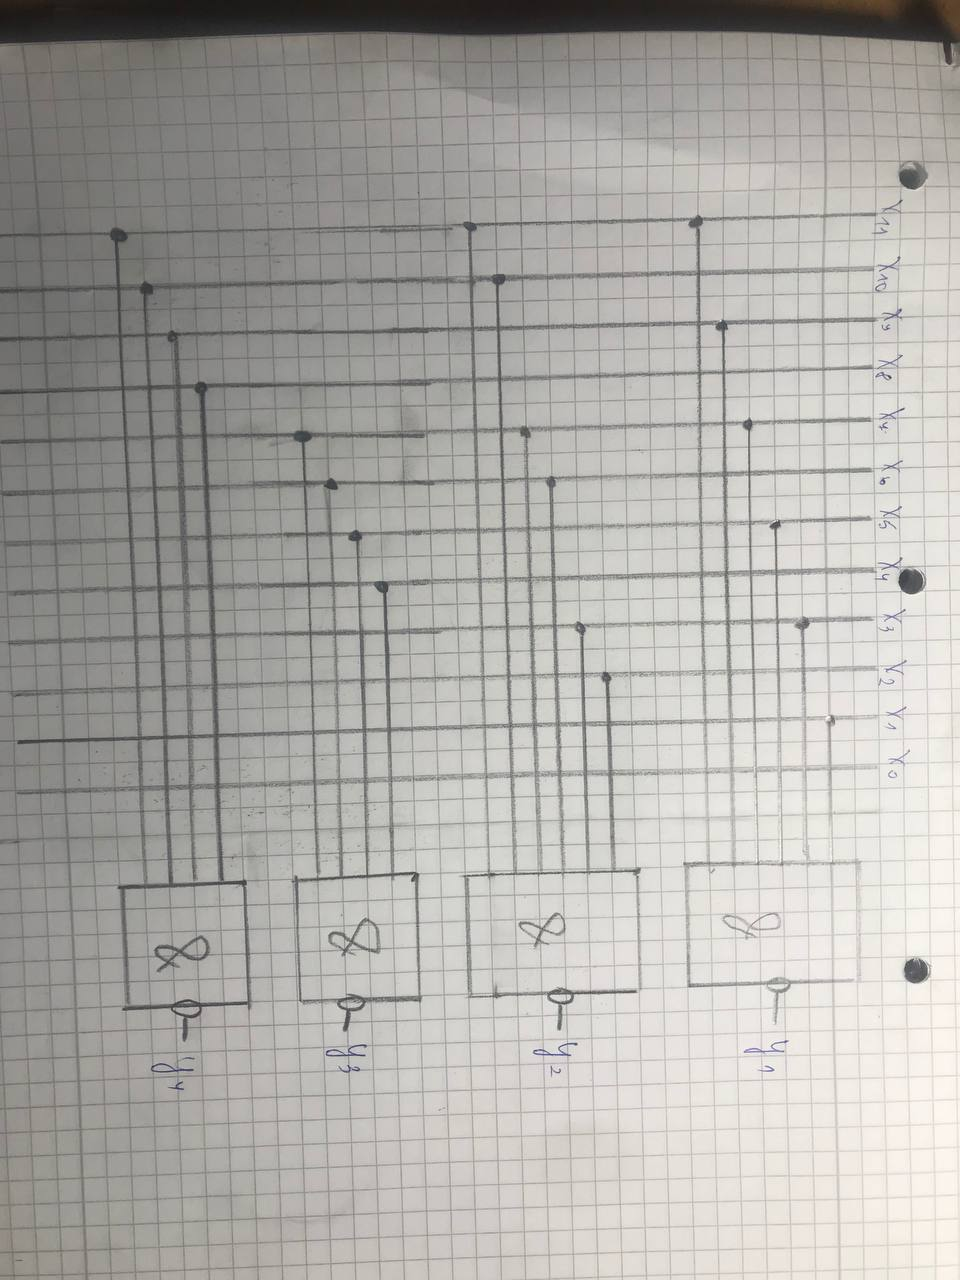 X11 X10 X9 X8 X7 X6 X5 X4 X3 X2 X1 X0
& y1
& y2
& y3
& y4